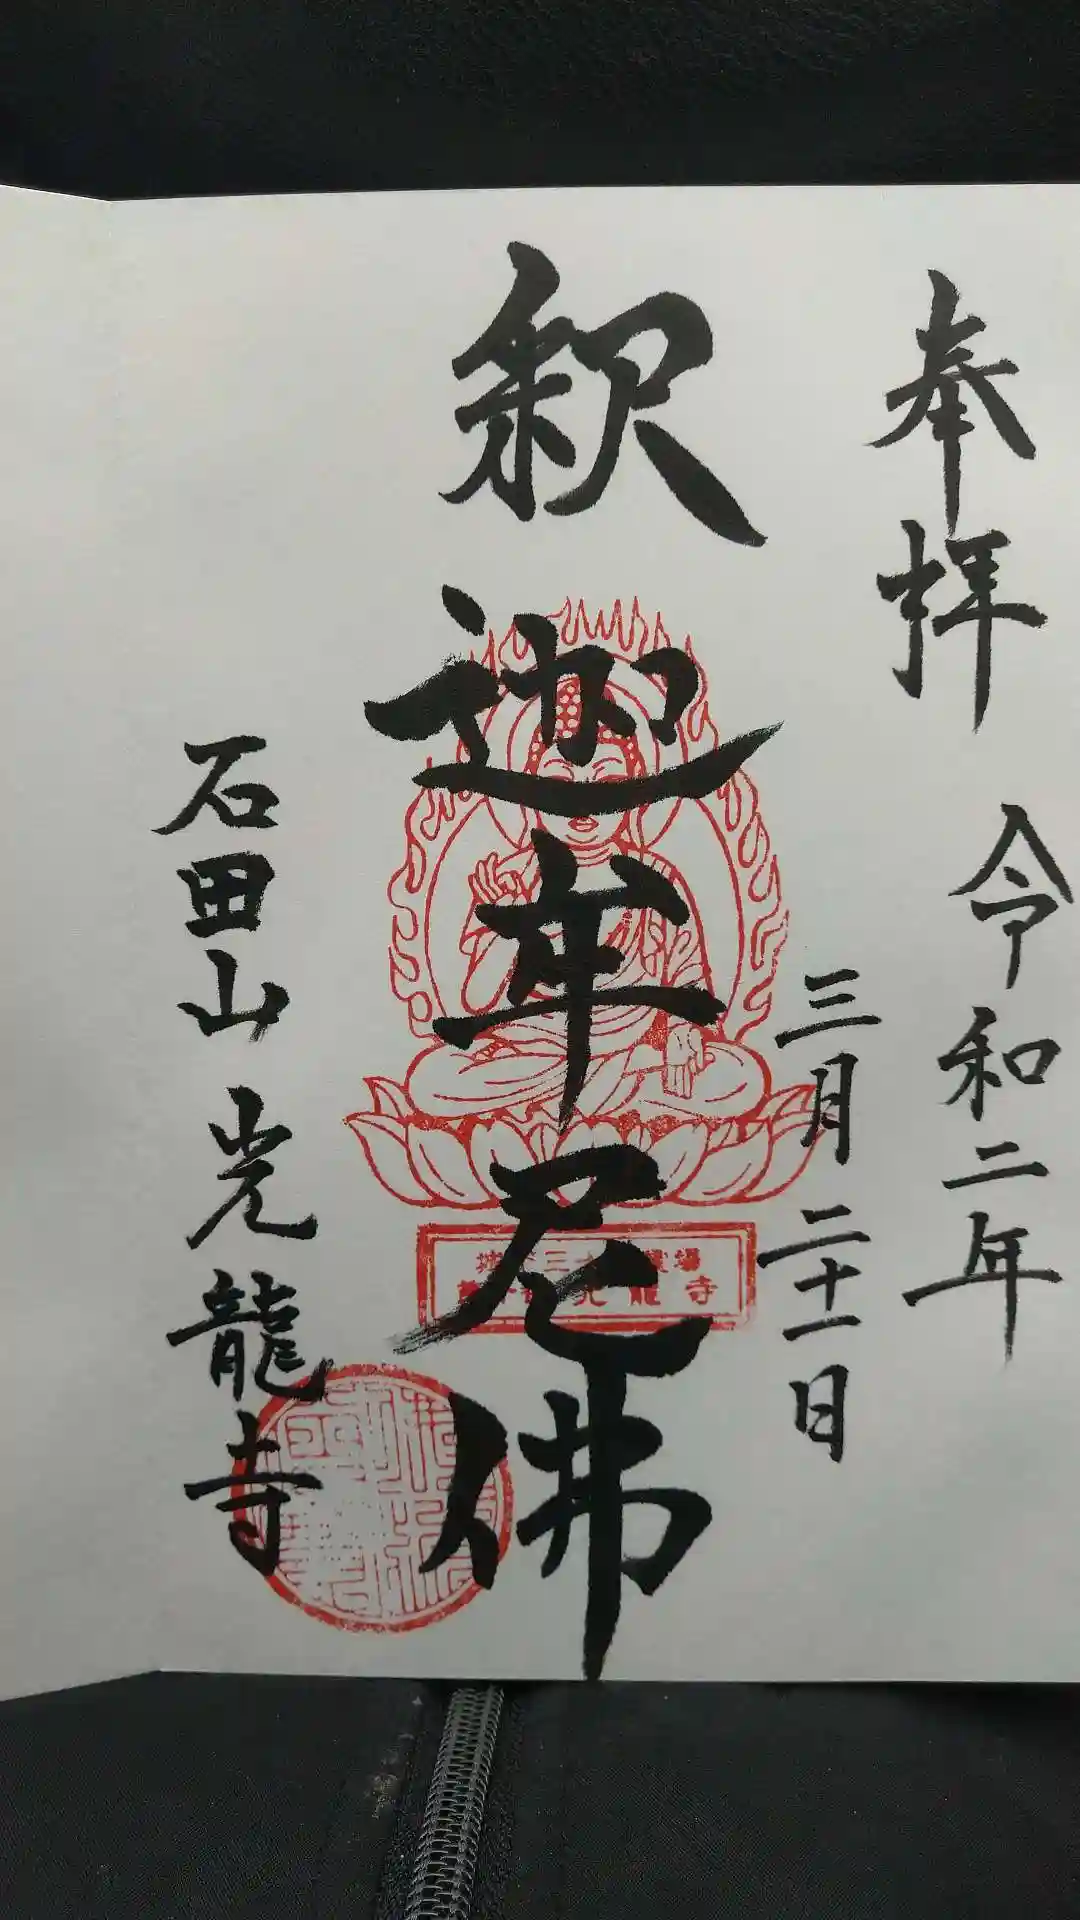 奉拝
令和二年
三月二十一日
釈迦牟尼佛
光龍寺
石田山光龍寺